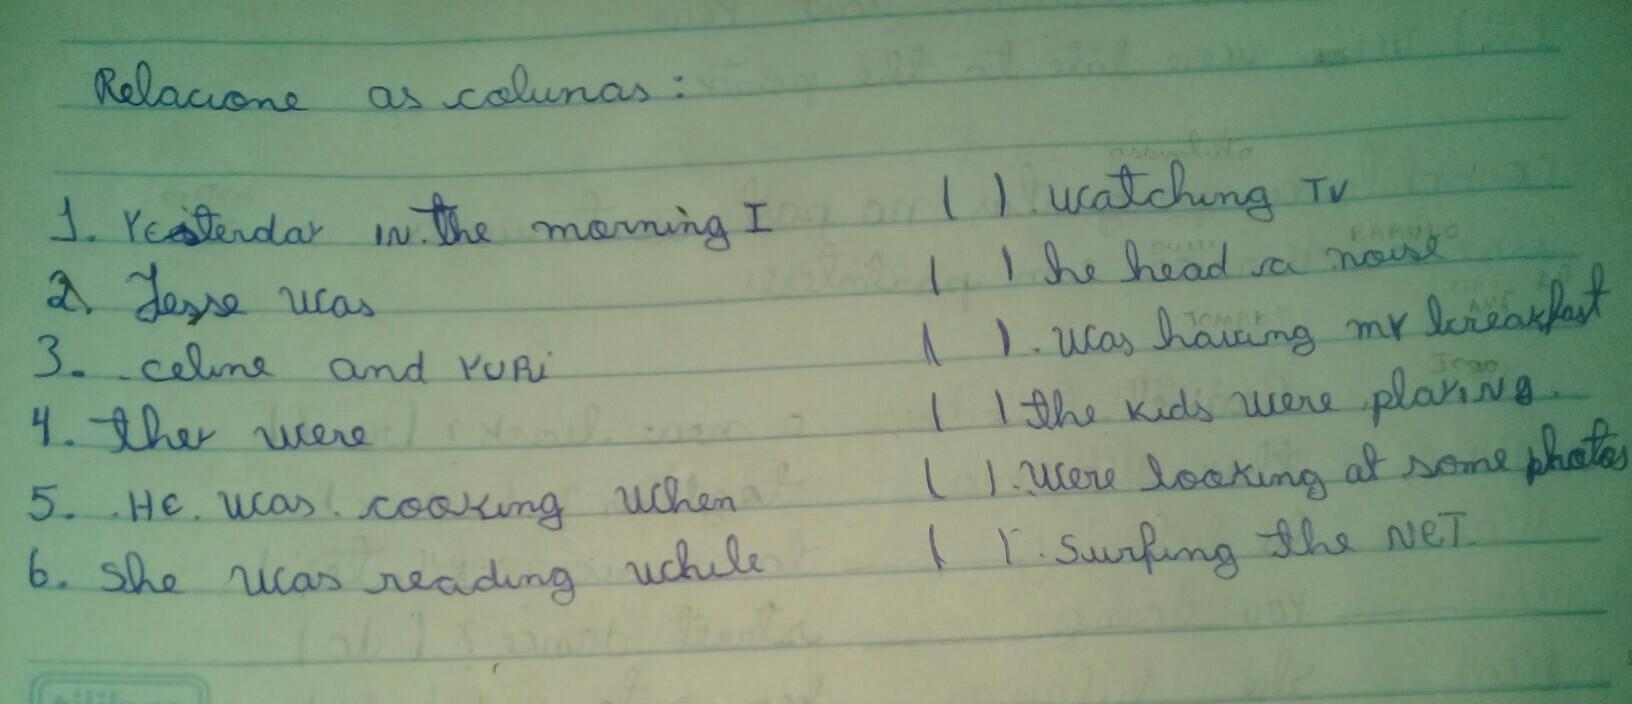 Relacione as colunas:
1. Yesterday in the morning I ( ) watching TV
2. Jesse was ( ) he head a noise
3. celine and YURi ( ) was having my breakfast
4. they were ( ) the kids were playing.
5. He was cooking when ( ) were looking at some photos
6. she was reading while ( ) surfing the NET.